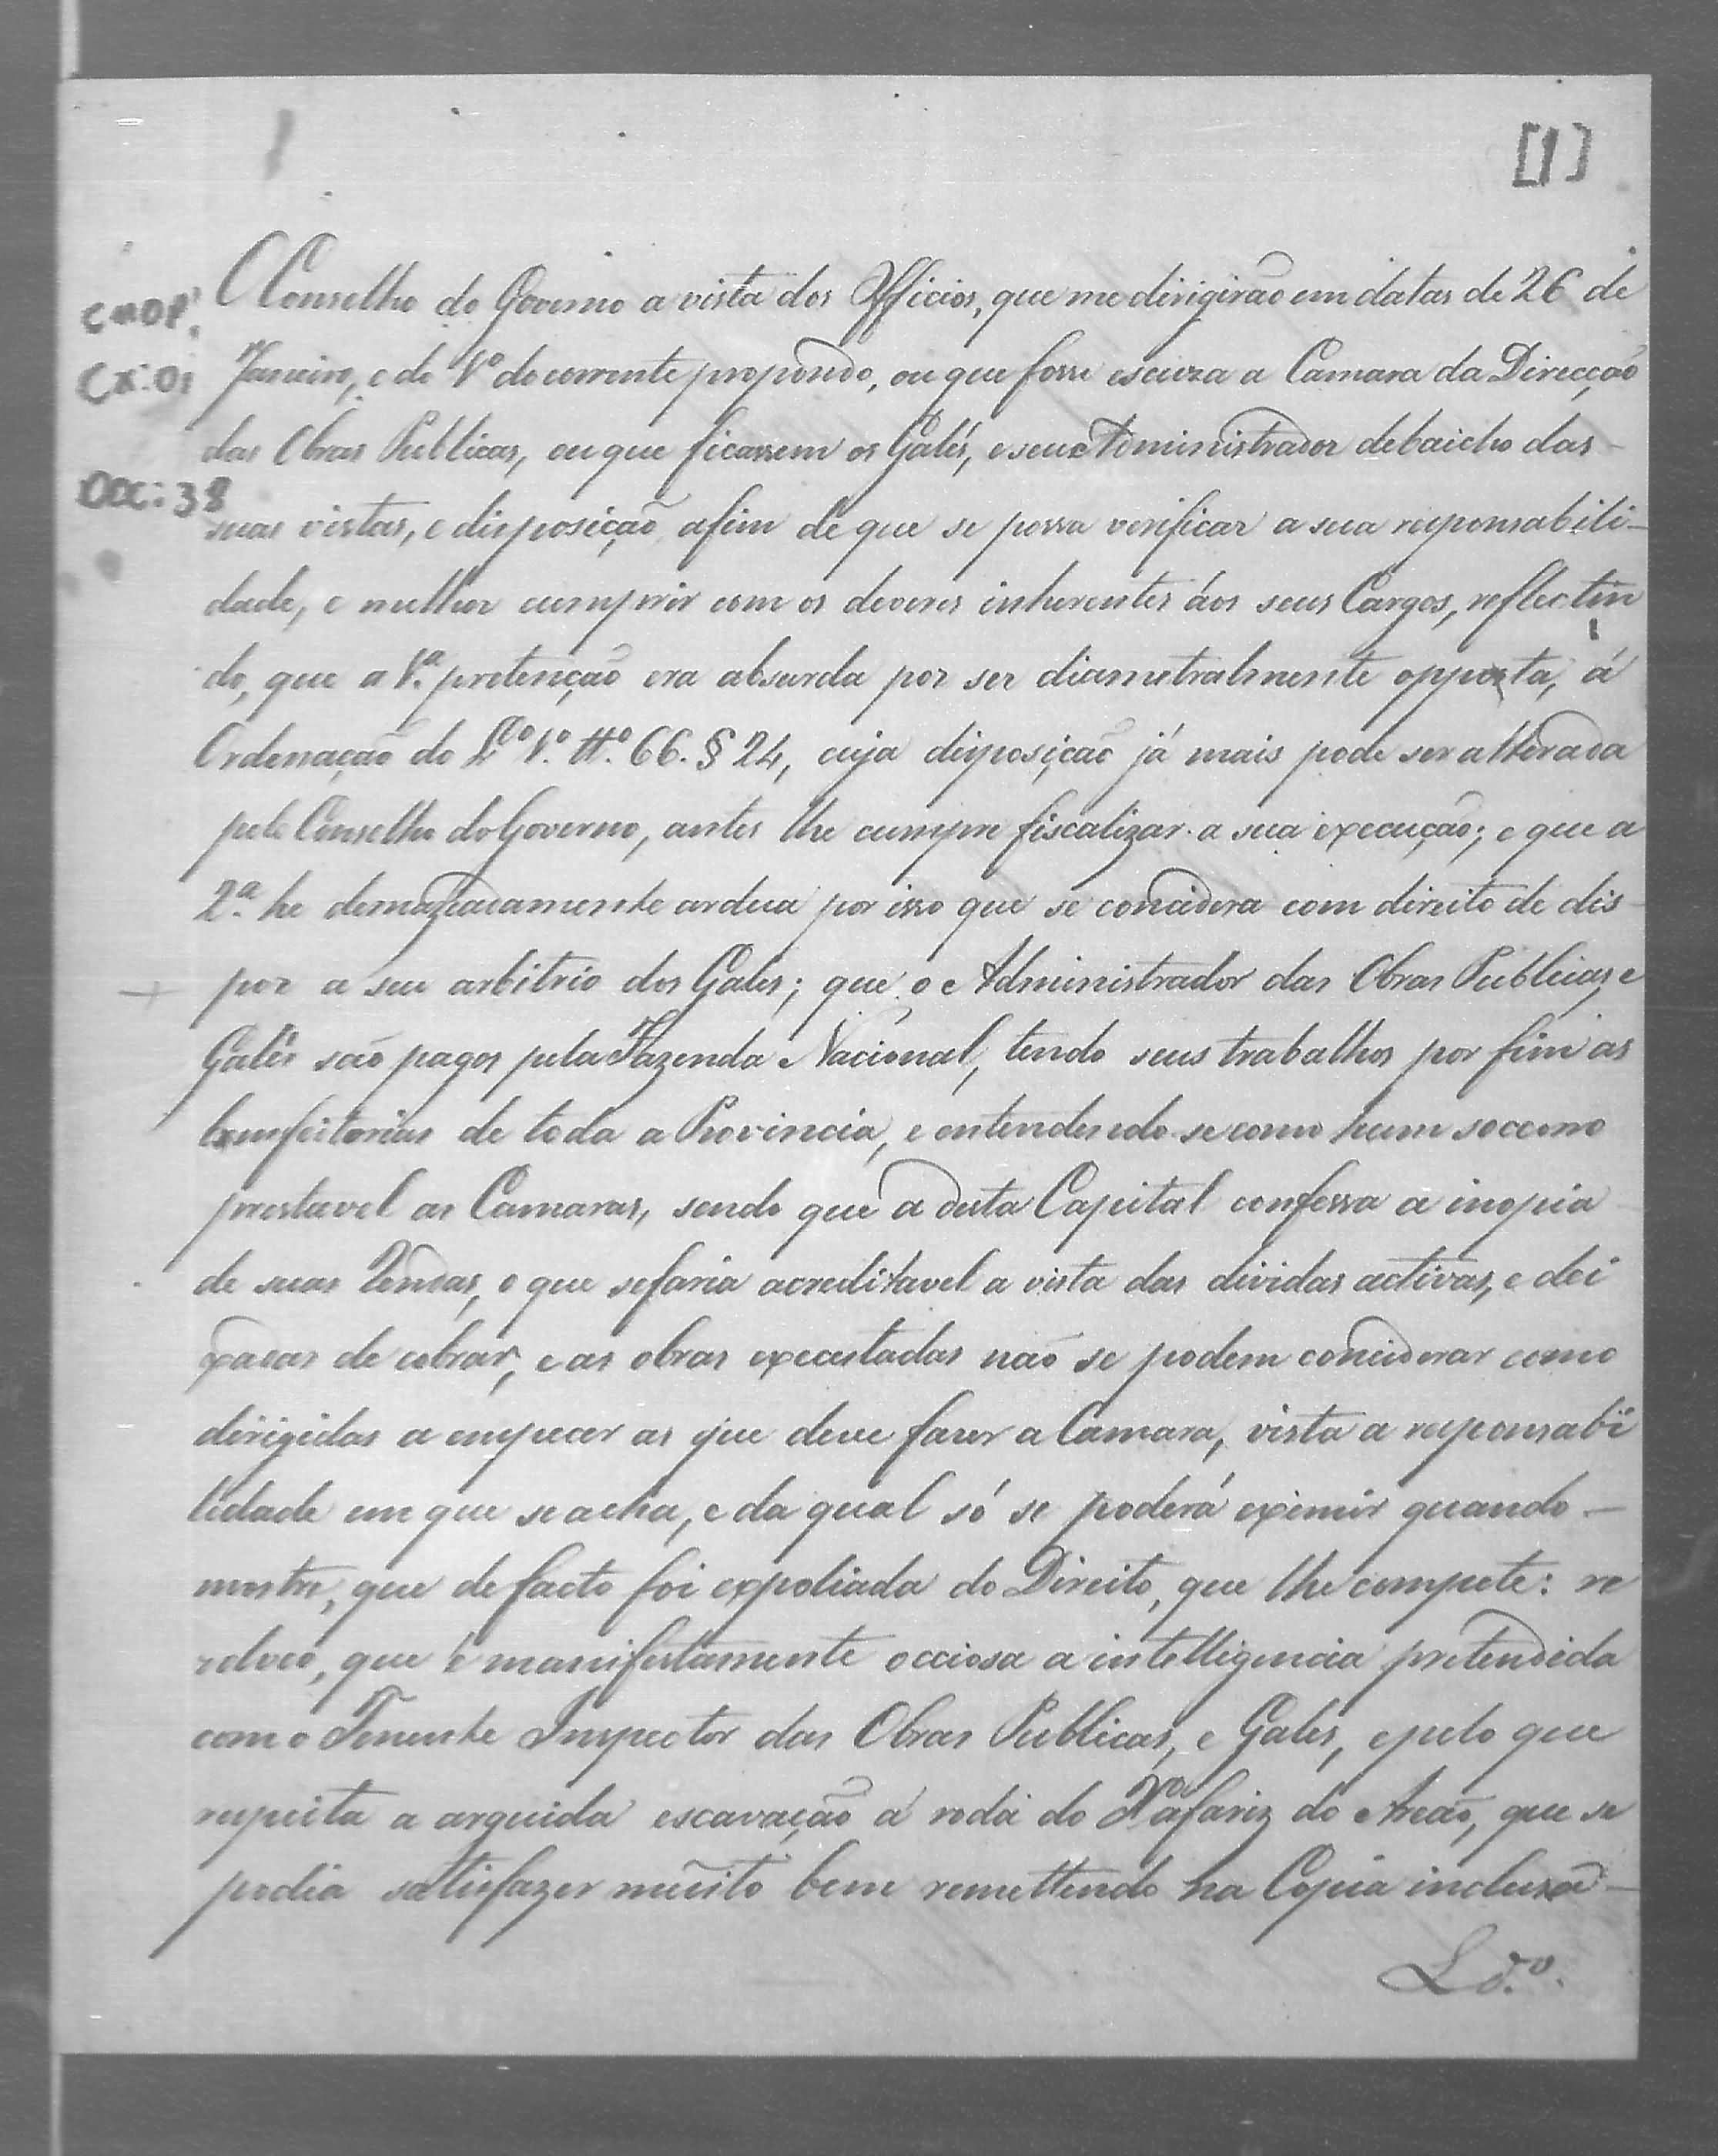 [1]
CMOP.
CX:01
DOC:38
O Conselho do Governo a vista dos Officios, que me dirigirão em datas de 26 de
Janeiro, e do 1º do corrente propondo, ou que fosse escuza a Camara da Direcção
das Obras Publicas, ou que ficassem os Galés, e seu Administrador debaicho das
suas vistas, e disposição afim de que se possa verificar a sua responsabili-
dade, e melhor cumprir com os deveres inherentes áos seus Cargos, reflectin
do, que a 1ª pretenção era absurda por ser diametralmente opposta, á
Ordenação do Lº 1º ttº 66. § 24, cuja disposição já mais pode ser alterada
pelo Conselho do Governo, antes lhe cumpre fiscalizar a sua execução; e que a
2ª he demaziadamente ardua por isso que se concidera com direito de dis-
por a seu arbitrio dos Galés; que o Administrador das Obras Publicas, e
Galés são pagos pela Fazenda Nacional, tendo seus trabalhos por fim as
bemfeitorias de toda a Provincia, e entendendo-se como hum soccorro
prestavel as Camaras, sendo que a desta Capital confessa a inopia
de suas Rendas, o que se faria acreditavel a vista das dividas activas, e dei
xadas de cobrar, e as obras executadas não se podem conciderar como
dirigidas a empecer as que deve fazer a Camara, vista a responsabi
lidade em que se acha, e da qual só se poderá eximir quando
mostre, que de facto foi expoliada do Direito, que lhe compete: re
solveo, que é manifestamente occiosa a intelligencia pretendida
com o Tenente Inspector das Obras Publicas, e Galés, e pelo que
respeita a arguida escavação á roda do Xafariz do Areão, que se
podia satisfazer muito bem remettendo na Copia incluza
Ldº.